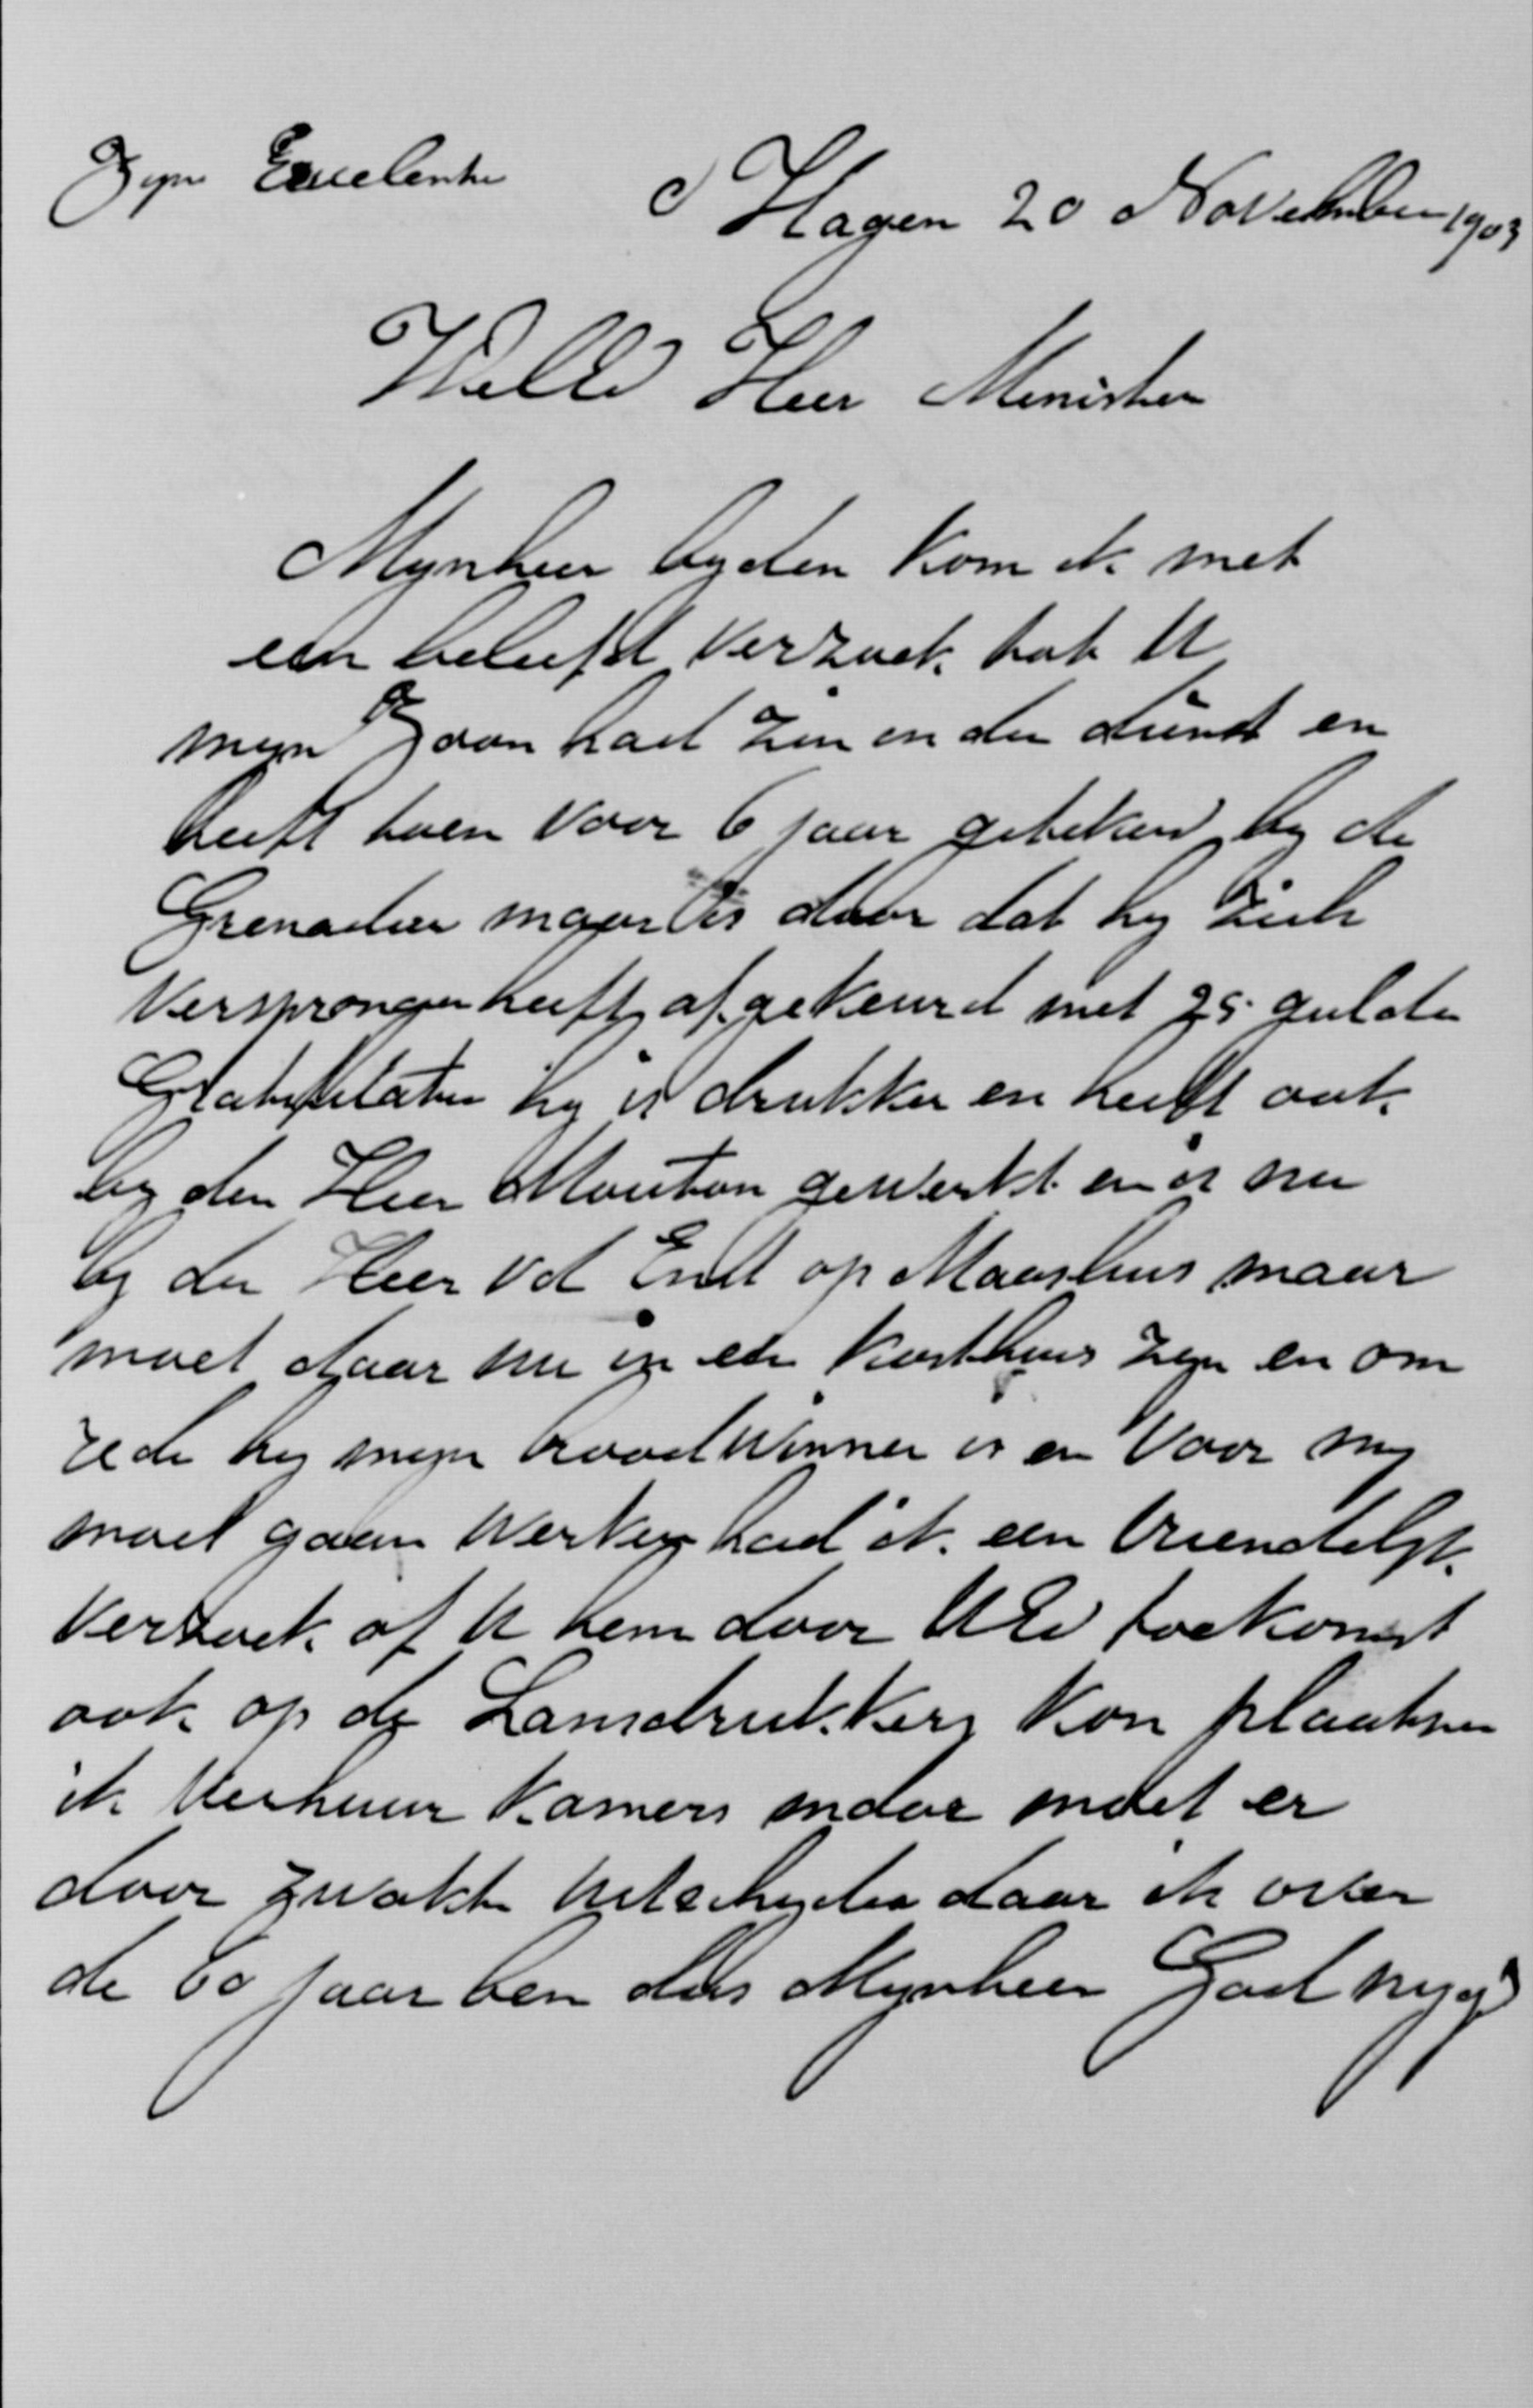 Zijn Excelentie
s Hagen 20 November 1903
WelEd Heer Minister
Mynheer byden kom ik met
een beleefd verzoek tot U
myn Zoon had zin in den dienst en
heeft toen voor 6 jaar geteken by de
Grenadier maar is door dat hy zich
versprongen heeft afgekeurd met 25 gulden
Gratifikatie hy is drukker en heeft ook
by den Heer Mouton gewerkt en is nu
by den Heer vd Endt op Maasluis maar
moet daar nu in een kosthuis zyn en om
rede hy myn broodwinner is en voor my
moet gaan werken had ik een vriendelyk
verzoek of U hem door UEd toekomst
ook op de Lansdrukkery kon plaatsen
ik verhuur kamers maar moet er
door zwakte uitscheyden daar ik over
de 60 jaar ben dus Mynheer God